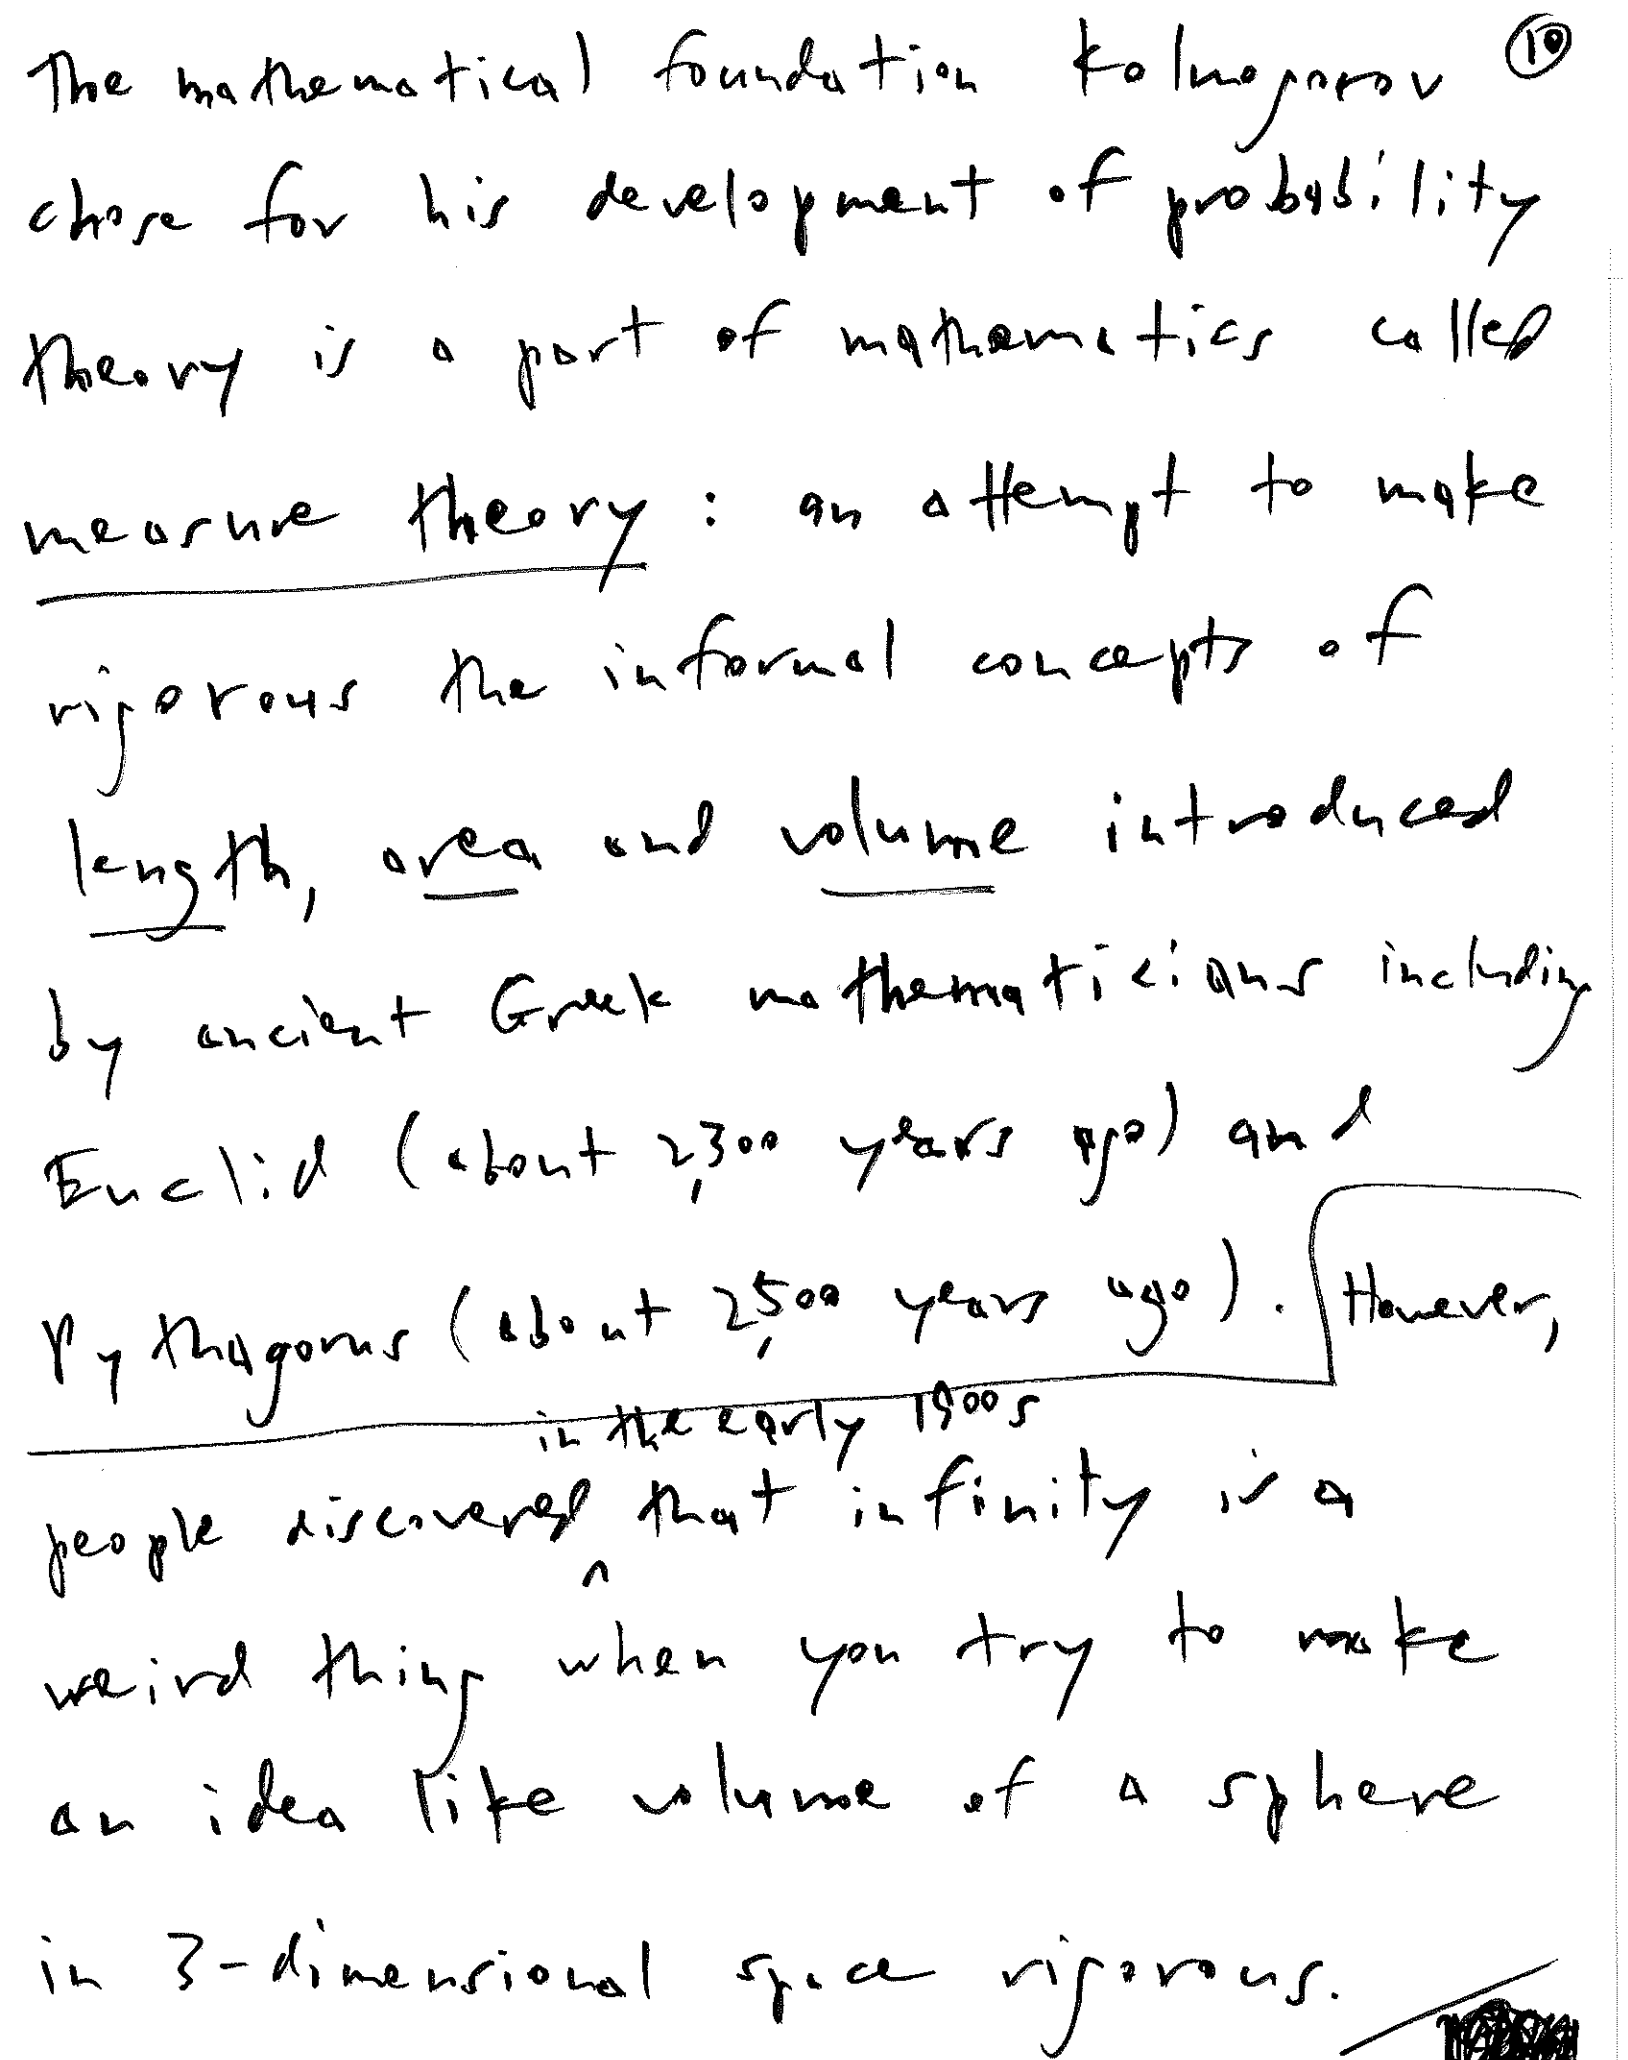 The mathematical foundation Kolmogorov 10
chose for his development of probability
theory is a part of mathematics called
measure theory: an attempt to make
rigorous the informal concepts of
length, area and volume introduced
by ancient Greek mathematicians including
Euclid (about 2,300 years ago) and
Pythagorus (about 2,500 years ago). However,
in the early 1900s
people discovered ^ that infinity is a
weird thing when you try to make
an idea like volume of a sphere
in 3-dimensional space rigorous.